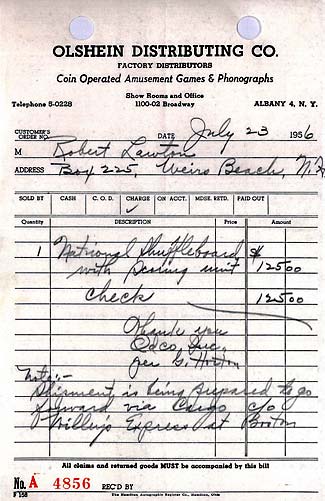 OLSHEIN DISTRIBUTING CO.
FACTORY DISTRIBUTORS
Coin Operated Amusement Games & Phonographs
Show Rooms and Office
Telephone 5-0228 1100-02 Broadway ALBANY 4, N. Y.
CUSTOMER'S ORDER NO. DATE July 23 1956
M Robert Lawton
ADDRESS Box 225, Weirs Beach, N.H.
SOLD BY CASH C. O. D. CHARGE ON ACCT. MDSE. RETD. PAID OUT
✓
Quantity DESCRIPTION Price Amount
1 National Shuffleboard $
with scoring unit 125 00
Check 125 00
Thank you
Edco, Inc.
per G. Horton
Note:-
Shipment is being prepared to go
forward via c/o
Willey's Express at Boston
All claims and returned goods MUST be accompanied by this bill
No. A 4856 REC'D BY
F 158 The Hamilton Autographic Register Co., Hamilton, Ohio